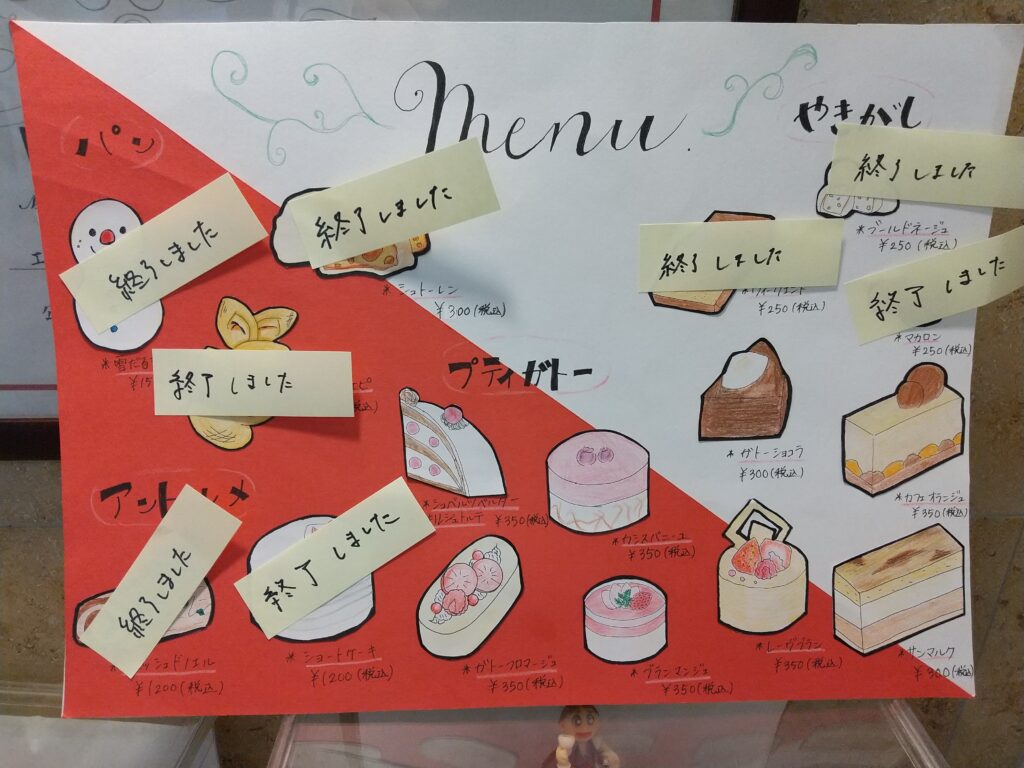 Menu.
パン
終了しました
*雪だる
¥15
終了しました
*シュトーレン
¥300(税込)
終了しました
エピ
税込)
やきがし
終了しました
*ブールドネージュ
¥250(税込)
終了しました
¥250(税込)
終了しました
*マカロン
¥250(税込)
プティガトー
*シュバルツベルダー
キルシュトルテ ¥350(税込)
*カシスバニーユ
¥350(税込)
*ガトーショコラ
¥300(税込)
*カフェオランジュ
¥350(税込)
*ガトーフロマージュ
¥350(税込)
*ブランマンジュ
¥350(税込)
*レーヴブラン
¥350(税込)
*サンマルク
¥300(税込)
アントルメ
終了しました
ッシュドノエル
¥1200(税込)
終了しました
*ショートケーキ
¥1200(税込)